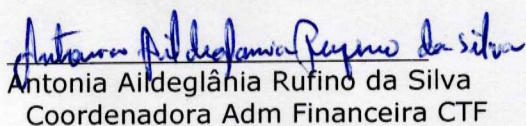 Antonia Aildeglânia Rufino da Silva
Antonia Aildeglânia Rufino da Silva
Coordenadora Adm Financeira CTF